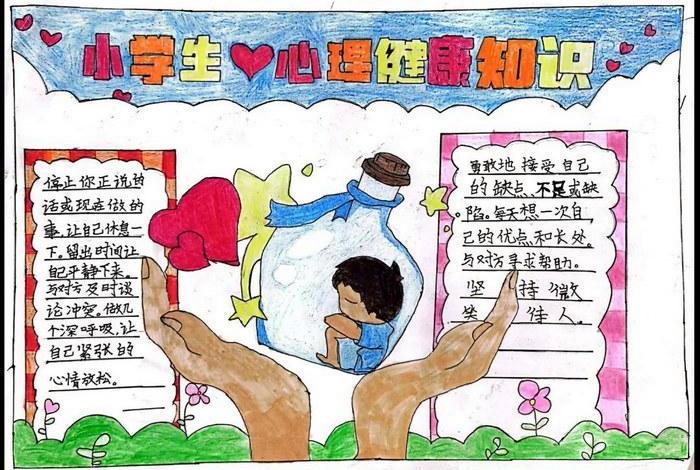 小学生心理健康知识
停止你正说的
话或现在做的
事，让自己休息一
下。留出时间让
自己平静下来。
与对方及时谈
论冲突。做几
个深呼吸，让
自己紧张的
心情放松。
勇敢地接受自己
的缺点、不足或缺
陷。每天想一次自
己的优点和长处。
与对方寻求帮助。
坚持微
笑佳人。